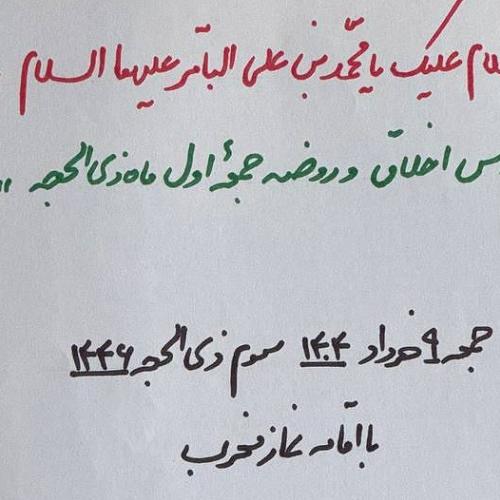 لام علیک یا محمد بن علی الباقر علیهما السلام
س اخلاق و روضه جمعهٔ اول ماه ذی الحجه "
جمعه ۹ خرداد ۱۴۰۴ سوم ذی الحجه ۱۴۴۶
با اقامه نماز مغرب